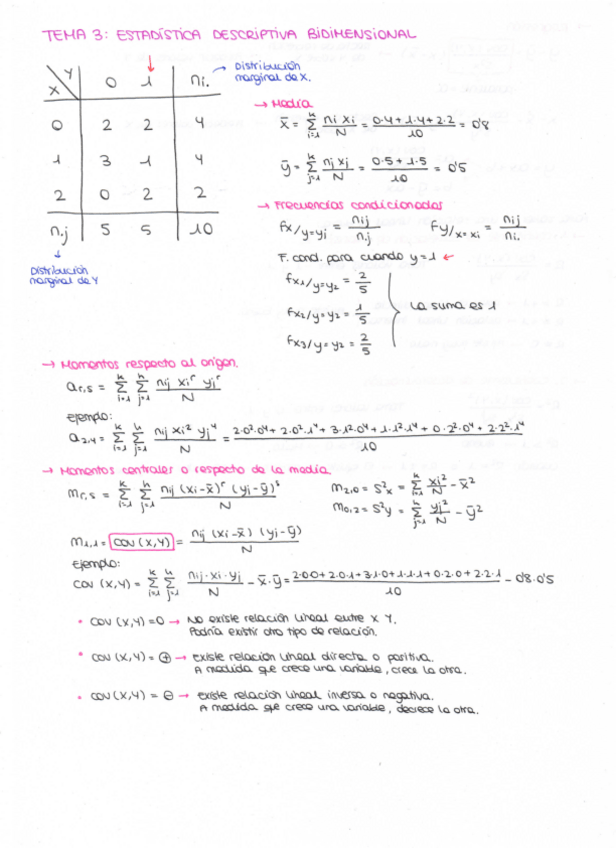 TEMA 3: ESTADÍSTICA DESCRIPTIVA BIDIMENSIONAL
X\Y 0 1 ni. → Distribución marginal de X.
0 2 2 4
1 3 1 4
2 0 2 2
n.j 5 5 10
↓
Distribución
marginal de Y
→ Media
x̄ = Σ_{i=1}^{k} ni xi / N = 0·4+1·4+2·2 / 10 = 0'8
ȳ = Σ_{j=1}^{h} nj xj / N = 0·5+1·5 / 10 = 0'5
→ Frecuencias condicionadas
fx/y=yj = nij / n.j fy/x=xi = nij / ni.
F. cond. para cuando y=1 ←
fx1/y=y2 = 2/5
fx2/y=y2 = 1/5
fx3/y=y2 = 2/5
La suma es 1
→ Momentos respecto al origen.
ar,s = Σ_{i=1}^{k} Σ_{j=1}^{h} nij xi^r yj^r / N
ejemplo:
a2,4 = Σ_{i=1}^{k} Σ_{j=1}^{h} nij xi² yj⁴ / N = 2·0²·0⁴+2·0²·1⁴+3·1²·0⁴+1·1²·1⁴+0·2²·0⁴+2·2²·1⁴ / 10
→ Momentos centrales o respecto de la media
mr,s = Σ_{i=1}^{k} Σ_{j=1}^{h} nij (xi-x̄)^r (yj-ȳ)^s / N
m2,0 = S²x = Σ_{i=1}^{k} xi² / N - x̄²
m0,2 = S²y = Σ_{j=1}^{h} yj² / N - ȳ²
m1,1 = cov(x,y) = nij (xi-x̄) (yj-ȳ) / N
Ejemplo:
cov (x,y) = Σ_{i=1}^{k} Σ_{j=1}^{h} nij·xi·yj / N - x̄·ȳ = 2·0·0+2·0·1+3·1·0+1·1·1+0·2·0+2·2·1 / 10 - 0'8·0'5
• cov (x,y) = 0 → No existe relación lineal entre X Y.
Podría existir otro tipo de relación.
• cov (x,y) = ⊕ → existe relación lineal directa o positiva.
A medida que crece una variable, crece la otra.
• cov (x,y) = ⊖ → existe relación lineal inversa o negativa.
A medida que crece una variable, decrece la otra.